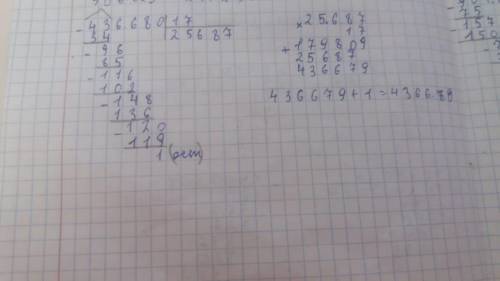 - 436680 | 17
34 | 25687
- 96
85
- 116
102
- 148
136
- 120
119
1 (ост)
× 25687
17
+ 179809
25687
436679
436679 + 1 = 436680